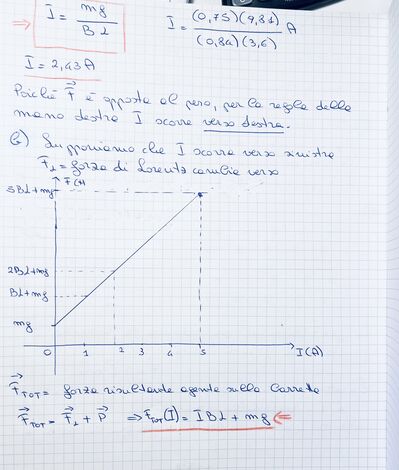 ⇒ I = mg / Bl    I = (0,75)(9,81) / (0,84)(3,6) A
I = 2,43 A
Poiché F⃗ è opposta al peso, per la regola della
mano destra I scorre verso destra.
b) Supponiamo che I scorra verso sinistra
F⃗_L = forza di Lorentz cambia verso
F(N)
5Bl+mg
2Bl+mg
Bl+mg
mg
0 1 2 3 4 5 I(A)
F⃗_TOT = forza risultante agente sulla barretta
F⃗_TOT = F⃗_L + P⃗ ⇒ F_TOT(I) = IBl + mg ⇐